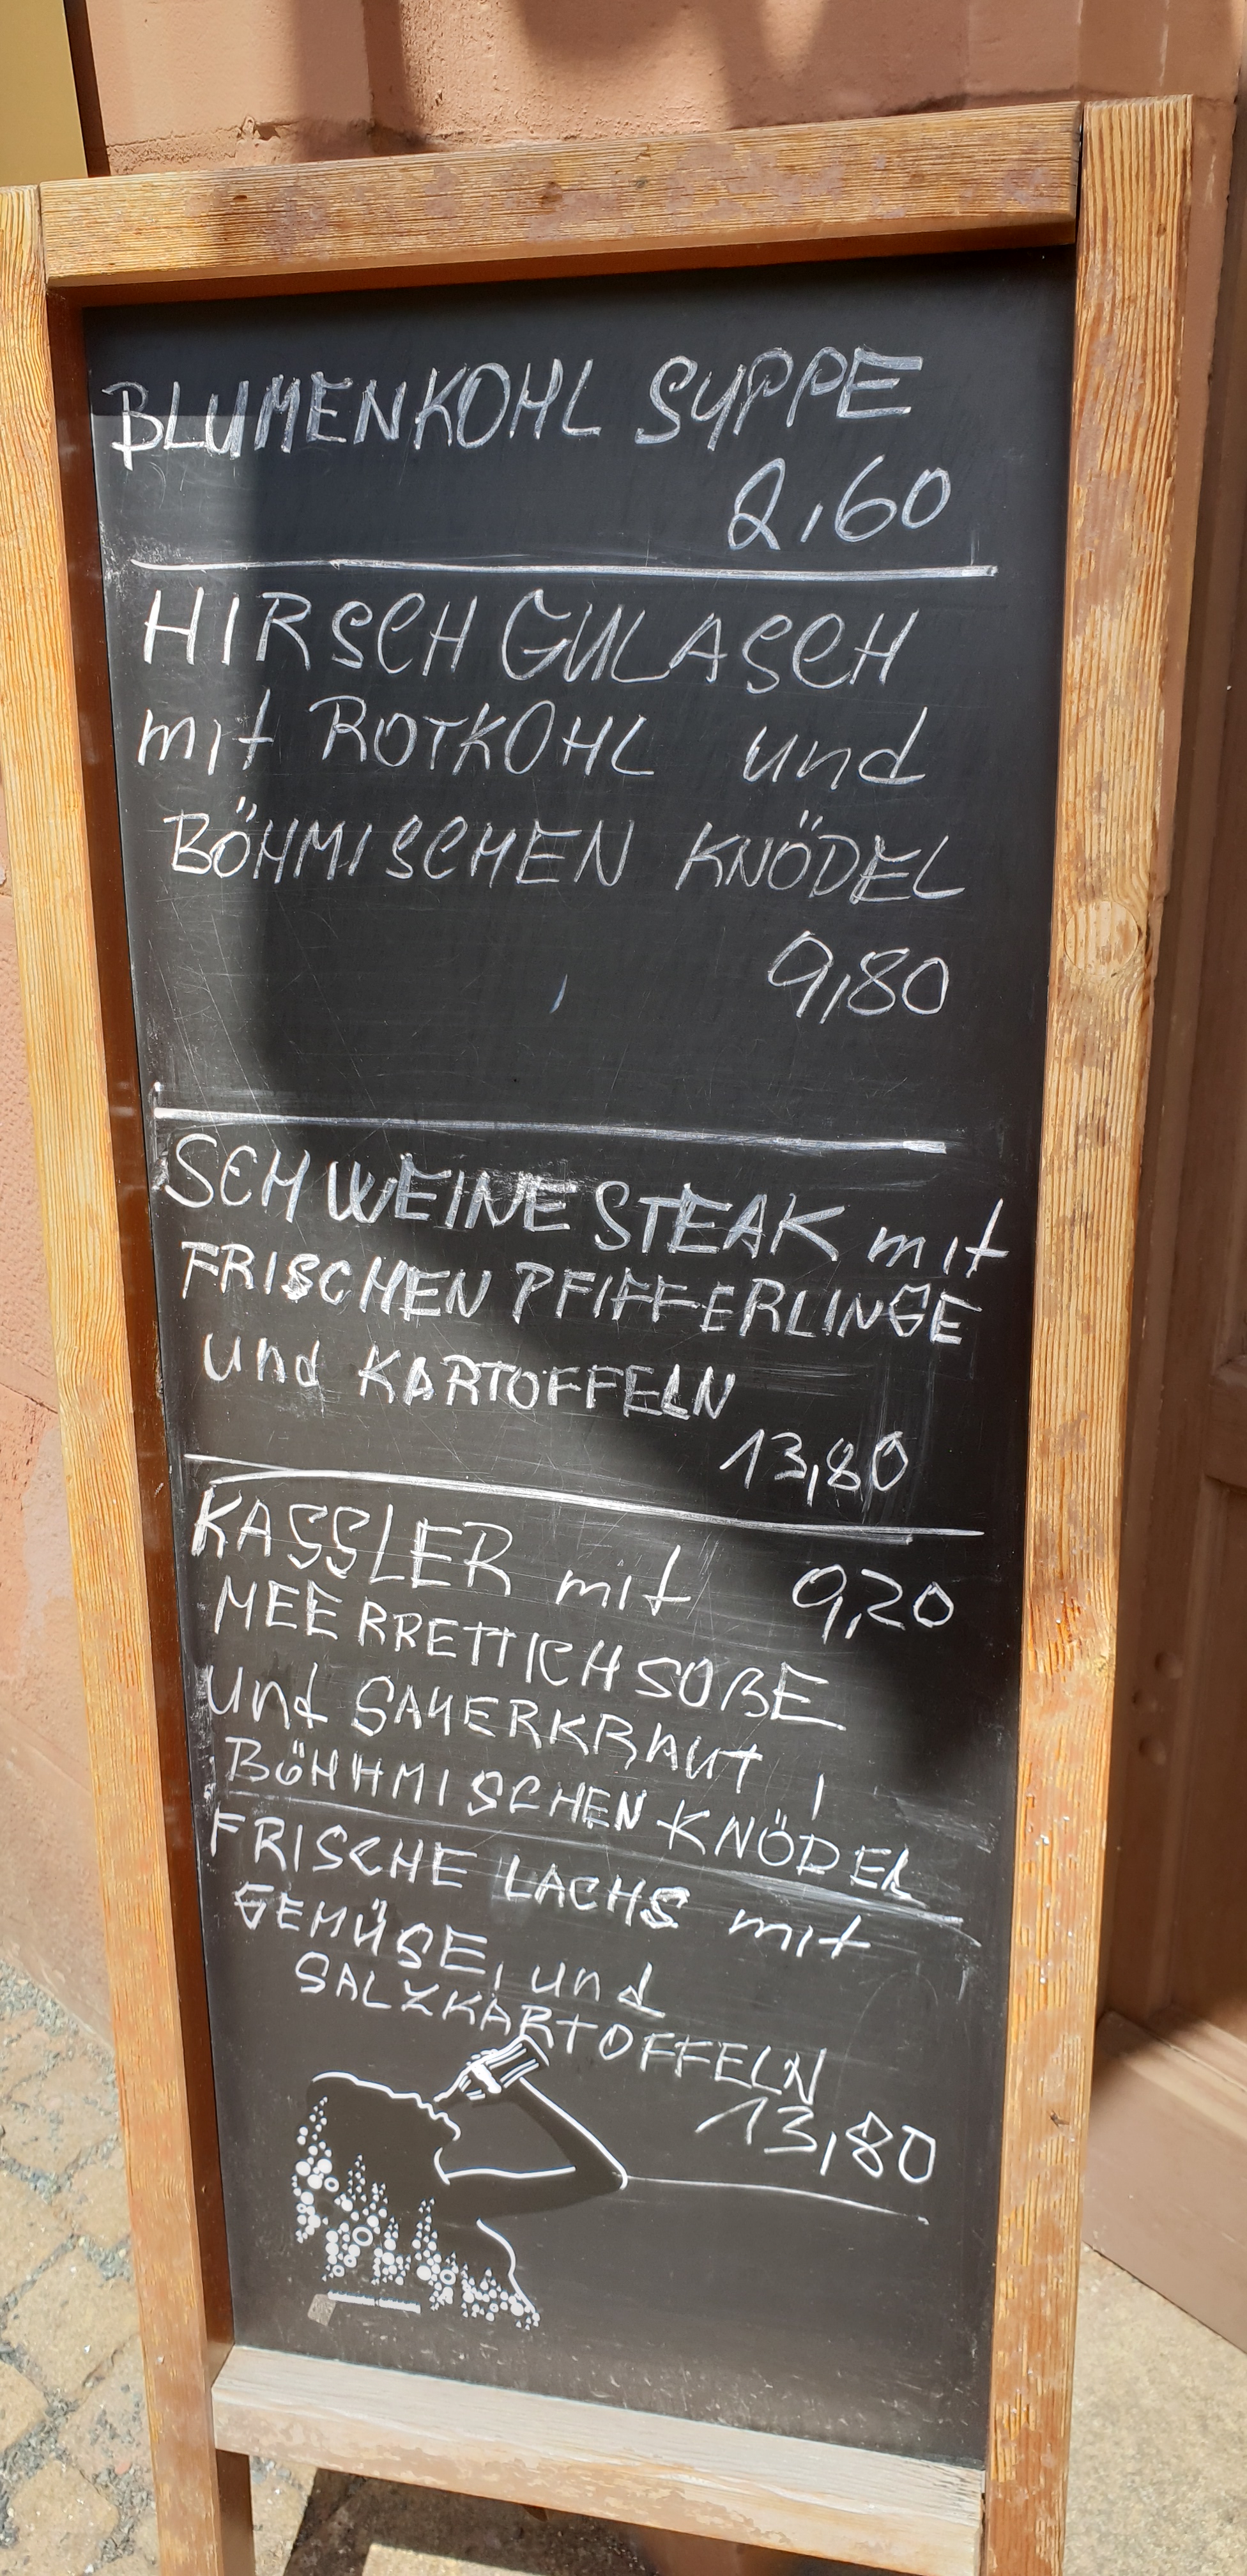 BLUMENKOHL SUPPE
2,60
HIRSCH GULASCH
mit ROTKOHL und
BÖHMISCHEN KNÖDEL
9,80
SCHWEINE STEAK mit
FRISCHEN PFIFFERLINGE
und KARTOFFELN
13,80
KASSLER mit 9,20
MEERRETTICHSOßE
und SAUERKRAUT,
BÖHHMISCHEN KNÖDEL
FRISCHE LACHS mit
GEMÜSE, und
SALZKARTOFFELN
13,80